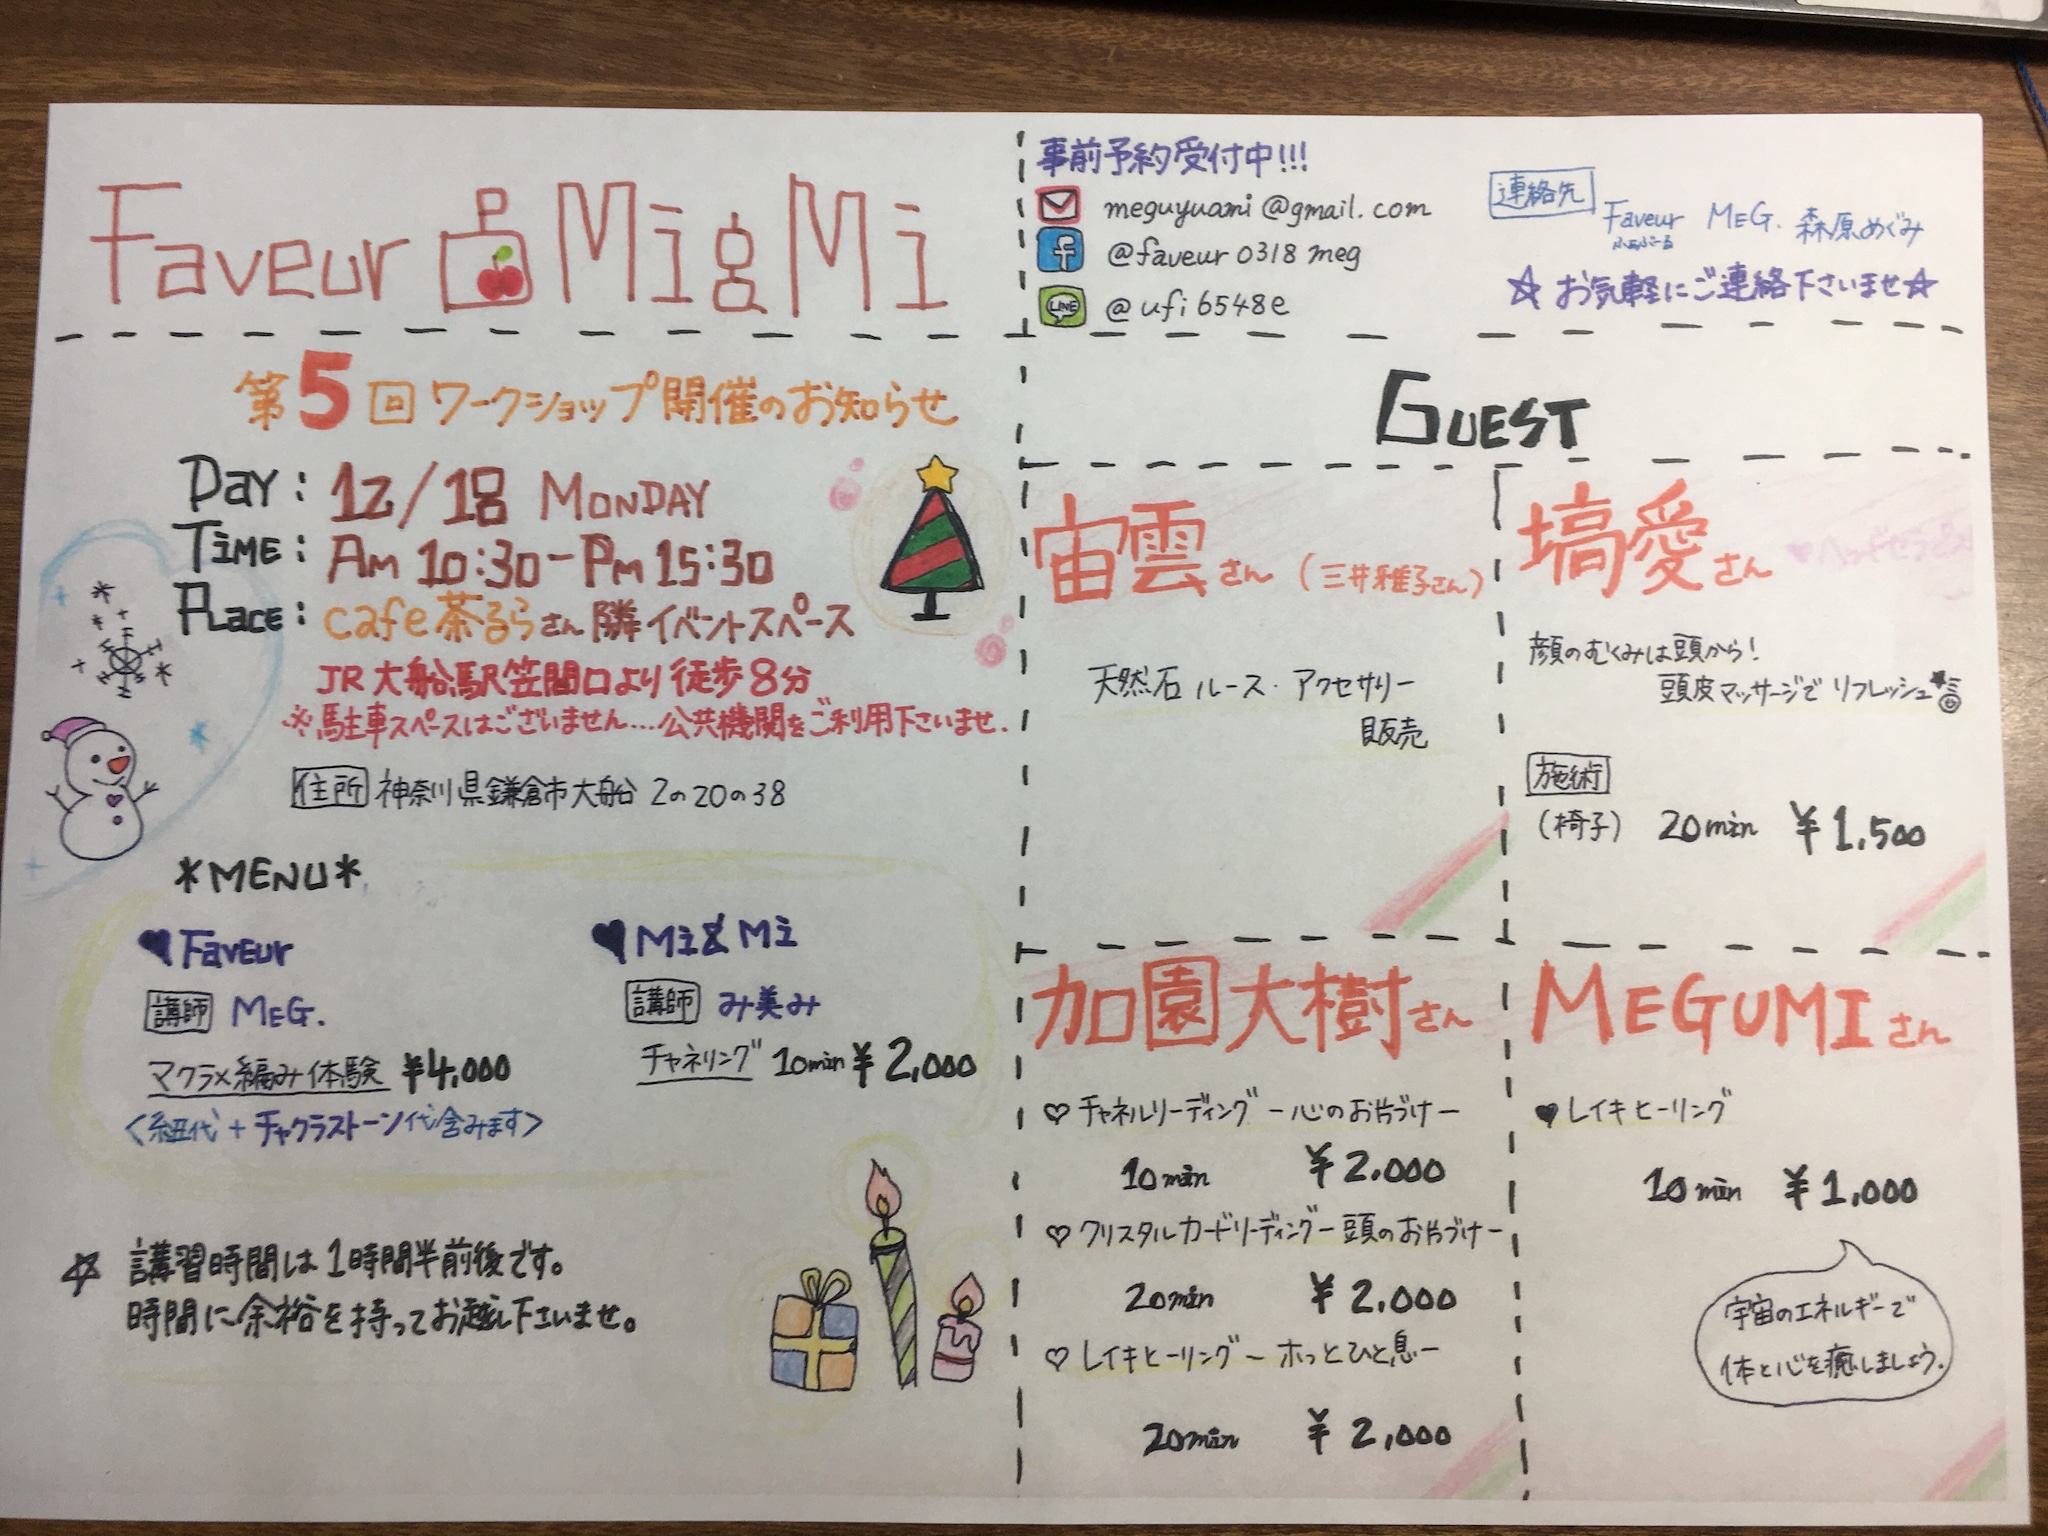 Faveur MigMi
事前予約受付中!!!
meguyuami@gmail.com
@faveur0318meg
@ufi6548e
連絡先
Faveur MEG. 森原めぐみ
ふぁぶーる
☆お気軽にご連絡下さいませ☆
第5回ワークショップ開催のお知らせ
DAY: 12/18 MONDAY
TIME: AM 10:30-PM 15:30
PLACE: cafe茶るらさん隣イベントスペース
JR大船駅笠間口より徒歩8分
※駐車スペースはございません...公共機関をご利用下さいませ.
住所 神奈川県鎌倉市大船2の20の38
*MENU*
♥Faveur
講師 MEG.
マクラメ編み体験 ¥4,000
<紐代+チャクラストーン代含みます>
♥Mi&Mi
講師 み美み
チャネリング 10min ¥2,000
☆ 講習時間は1時間半前後です。
時間に余裕を持ってお越し下さいませ。
GUEST
宙雲さん(三井雅子さん)
天然石ルース・アクセサリー
販売
塙愛さん
♥ヘッドセラピスト
顔のむくみは頭から!
頭皮マッサージでリフレッシュ
施術
(椅子) 20min ¥1,500
加園大樹さん
♡チャネルリーディング-心のお片づけ-
10min ¥2,000
♡クリスタルカードリーディング-頭のお片づけ-
20min ¥2,000
♡レイキヒーリング-ホっとひと息-
20min ¥2,000
MEGUMIさん
♥レイキヒーリング
10min ¥1,000
宇宙のエネルギーで
体と心を癒しましょう.